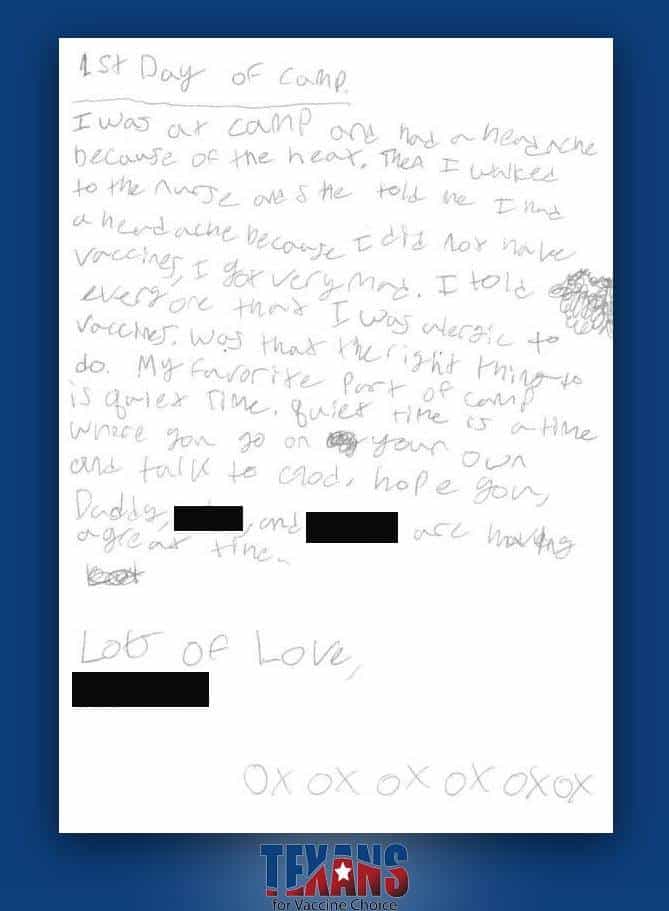 1st Day of camp.
I was at camp and had a headache
because of the heat. Then I walked
to the nurse and she told me I had
a headache because I did not have
vaccines, I got very mad. I told
everyone that I was alergic to
vaccines. Was that the right thing to
do. My favorite part of camp
is quiet time. quiet time is a time
where you go on your own
and talk to God. hope you,
Daddy, , and are having
a great time.
Lots of Love,
OX OX OX OX OX OX
TEXANS
for Vaccine Choice